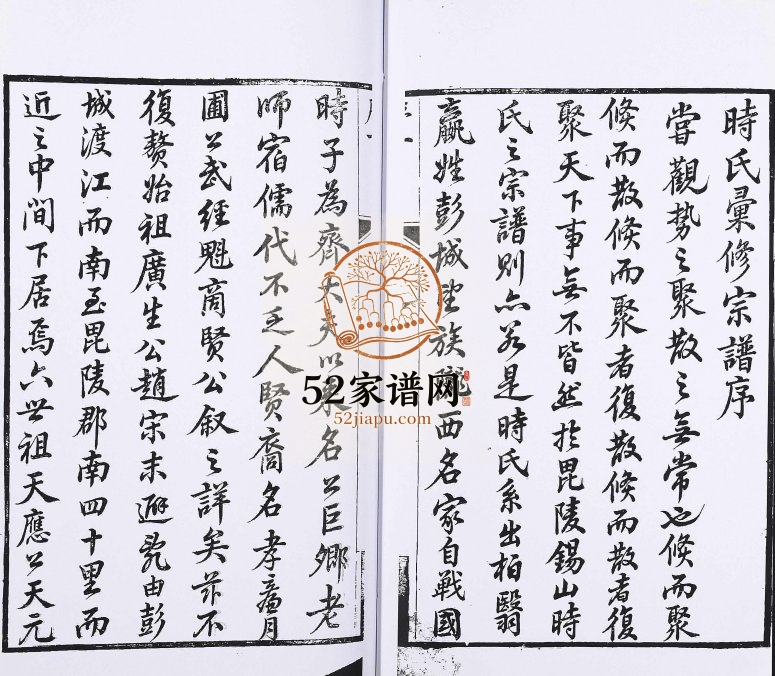 時氏彙修宗譜序
嘗觀勢之聚散之無常也倏而聚
倏而散倏而聚者復散倏而散者復
聚天下事無不皆然於毘陵錫山時
氏之宗譜則亦若是時氏系出柏翳
嬴姓彭城望族隴西名家自戰國
時子為齊大夫以來名公巨卿老
師宿儒代不乏人賢裔名孝
圃公武經魁商賢公叙之詳矣茲不
復贅始祖廣生公趙宋末避亂由彭
城渡江而南至毘陵郡南四十里而
近之中間下居焉六世祖天應公天元
52家谱网
52jiapu.com